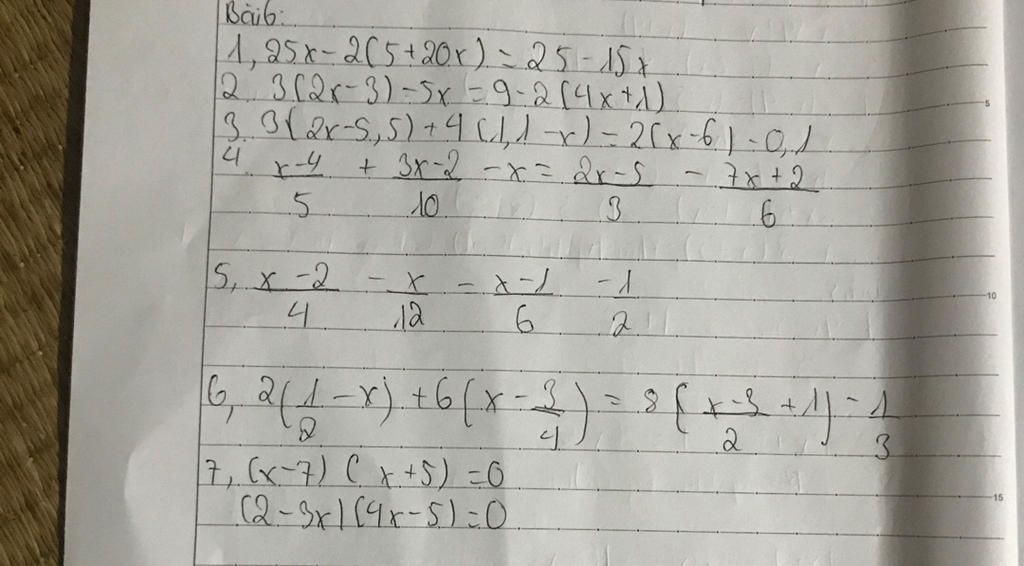 Bài 6:
1, 25x - 2(5+20x) = 25 - 15x
2. 3(2x-3) - 5x = 9 - 2(4x+1)
3. 3(2x-5,5) + 4(1,1-x) = 2(x-6) - 0,1
4. x-4/5 + 3x-2/10 - x = 2x-5/3 - 7x+2/6
5, x-2/4 - x/12 - x-1/6 - 1/2
6, 2(1/2 - x) + 6(x - 3/4) = 8(x-3/2 + 1) - 1/3
7, (x-7)(x+5) = 0
(2-3x)(4x-5) = 0
5
10
15